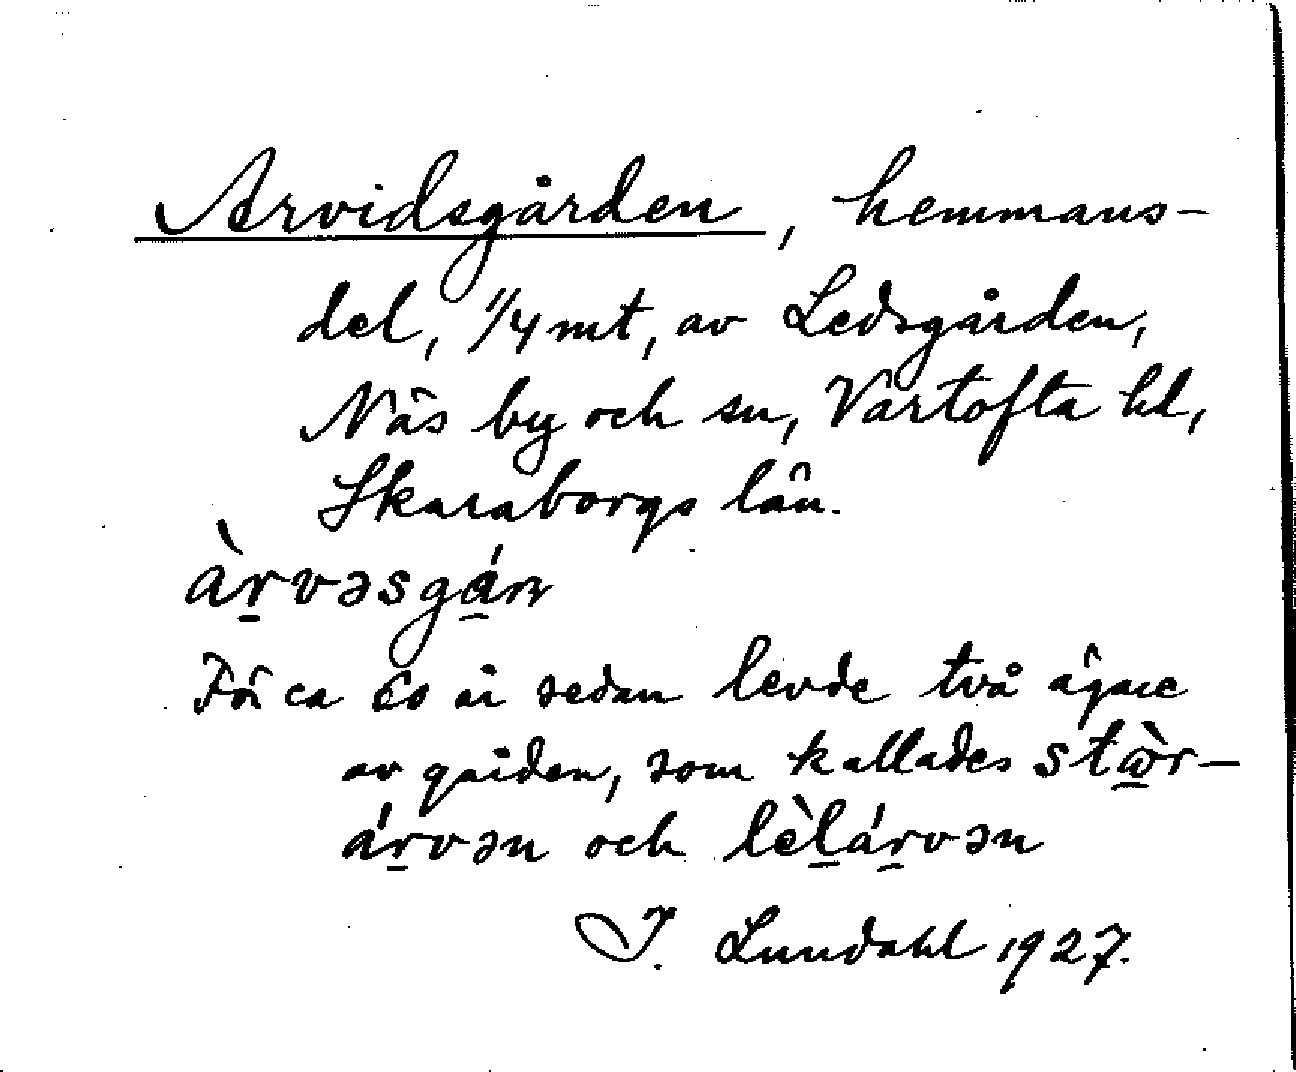 Arvidsgården, hemmans-
del, 1/4 mt, av Ledsgården,
Näs by och sn, Vartofta hd,
Skaraborgs län.
àr̲vəsgá̲rn
För ca 60 år sedan levde två ägare
av gården, som kallades stὼ̲r-
ár̲vən och lèl̲ár̲vən
I. Lundahl 1927.